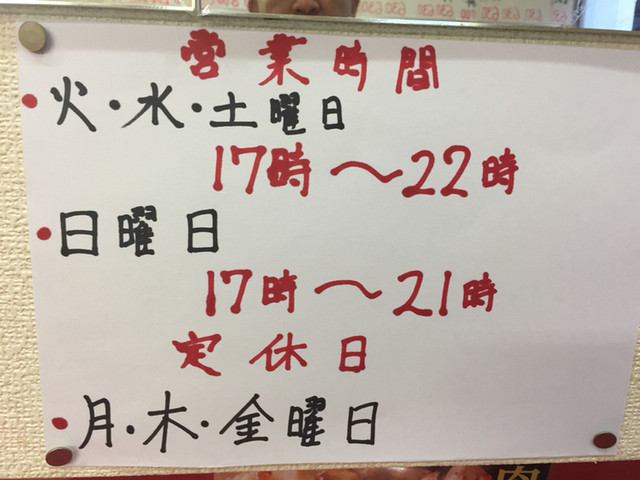 営業時間
・火・水・土曜日
17時〜22時
・日曜日
17時〜21時
定休日
・月・木・金曜日
肉